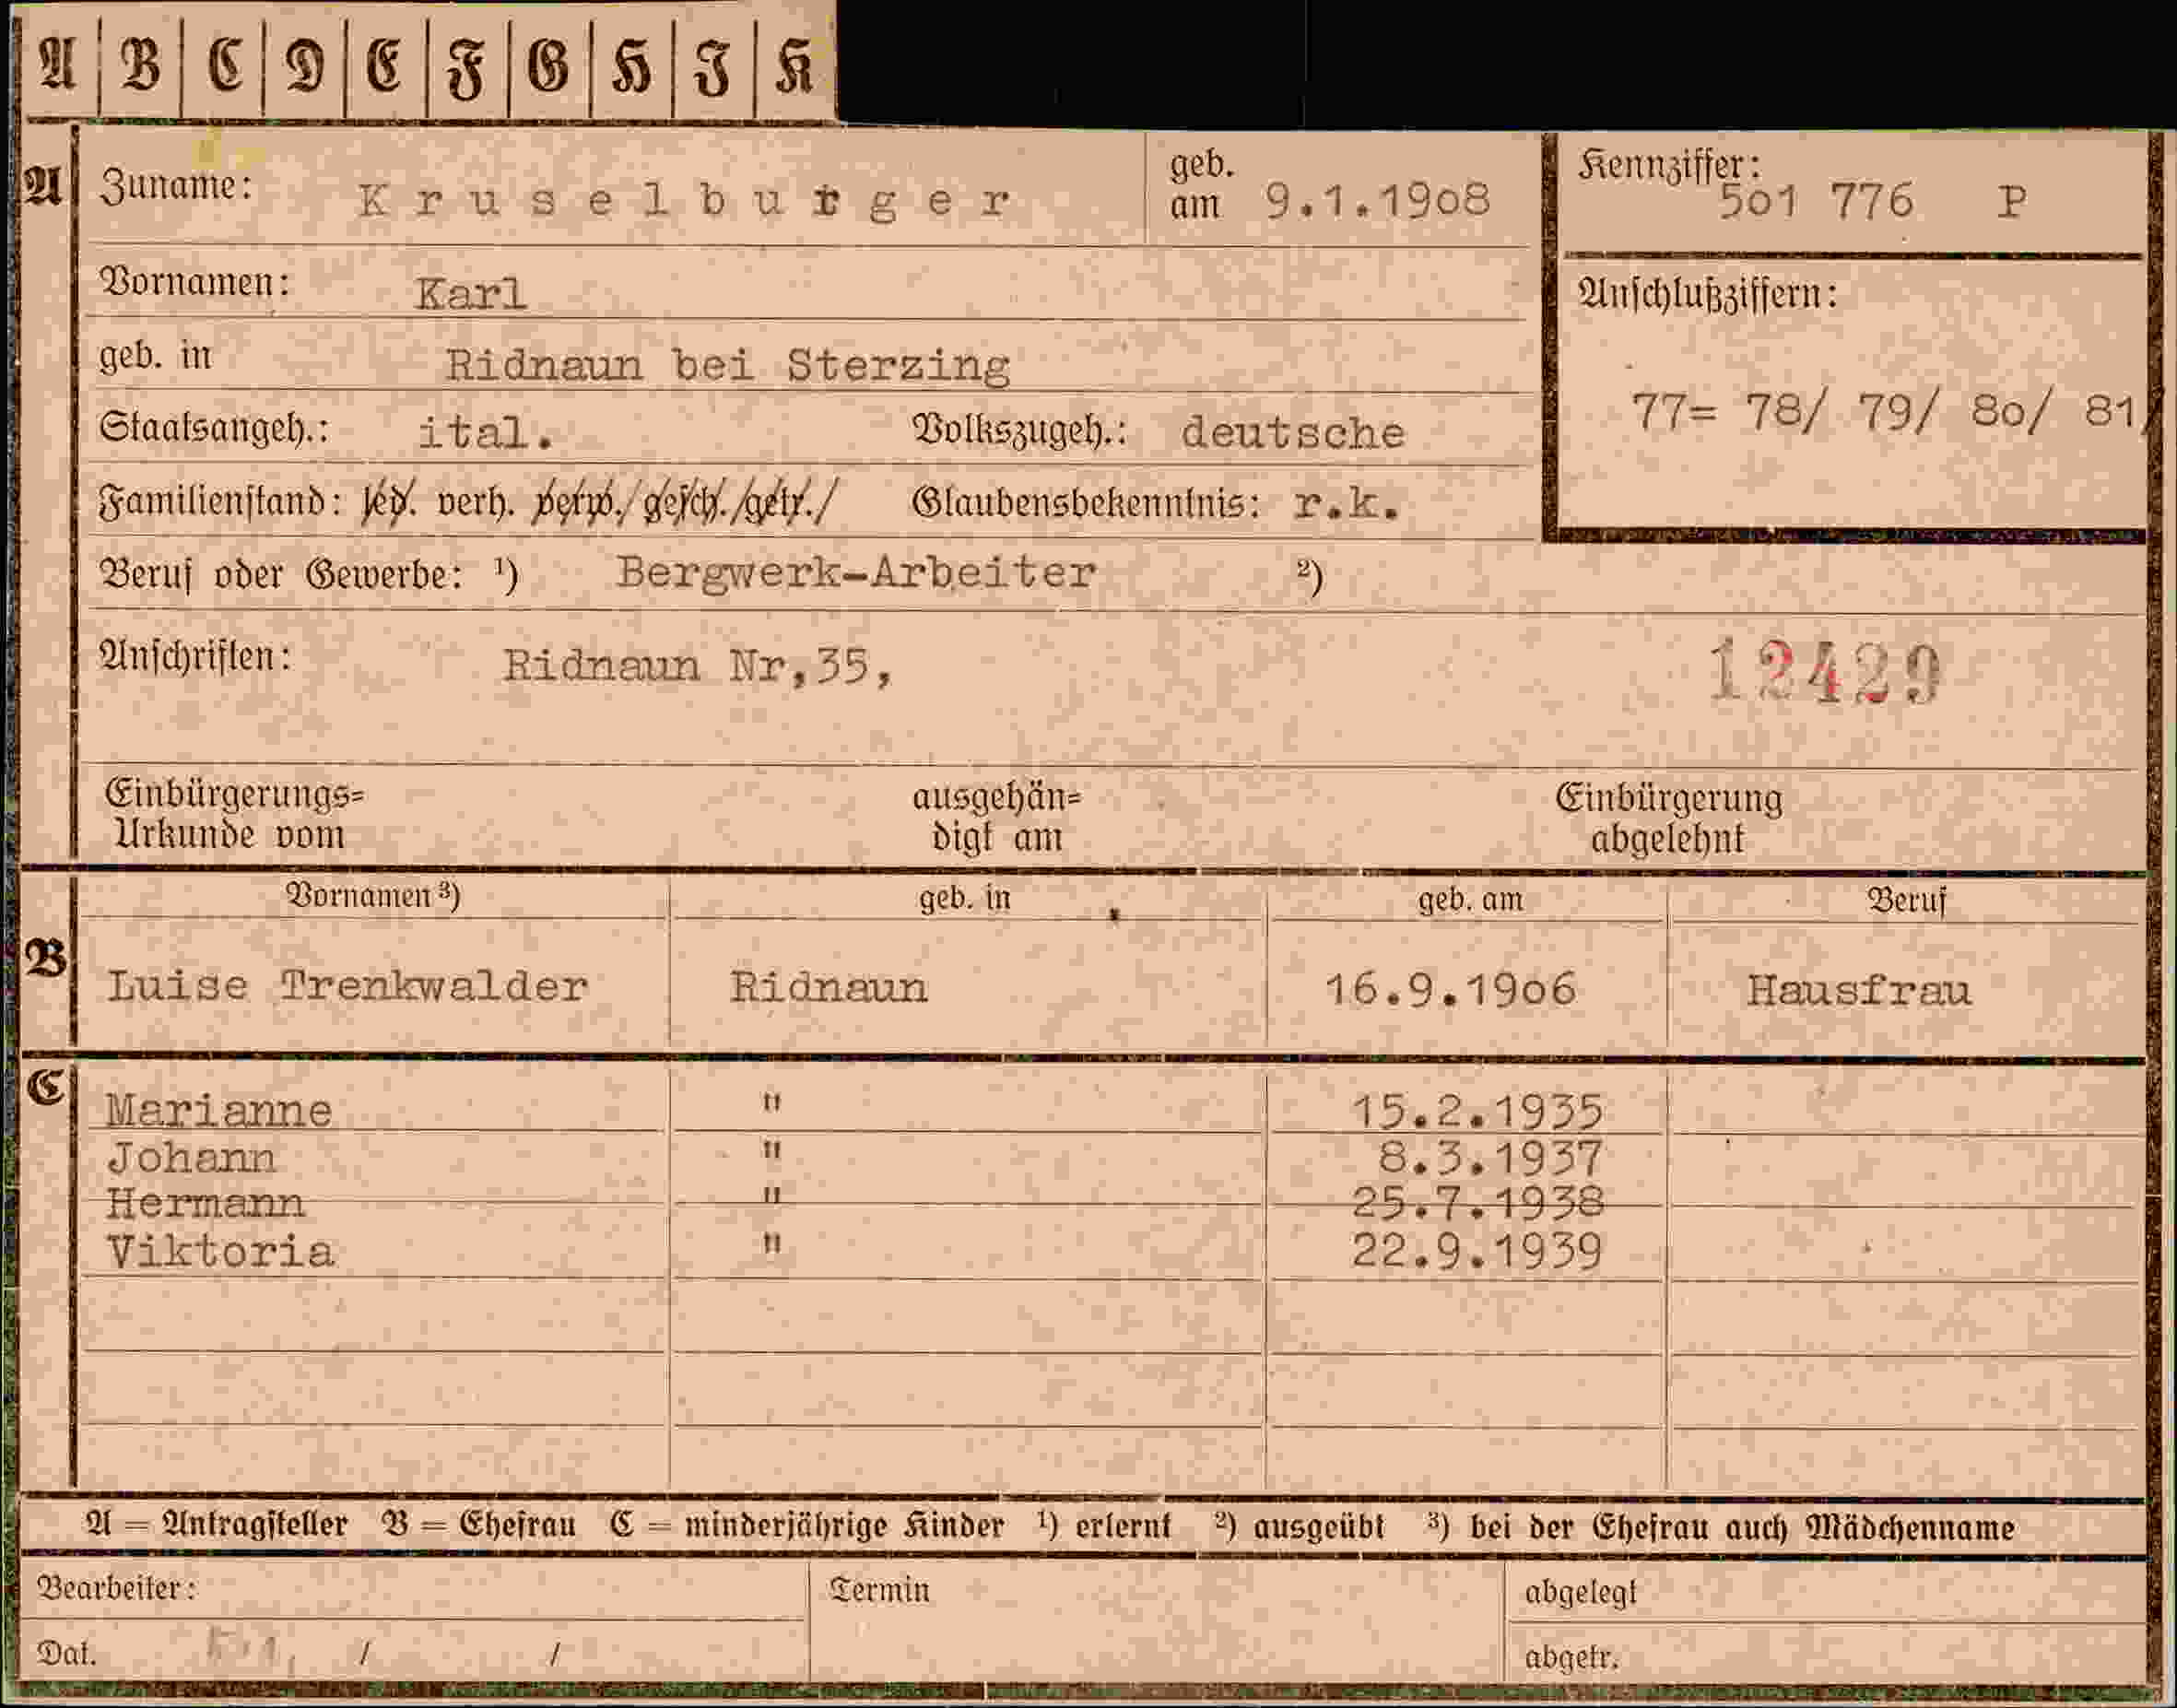 A B C D E F G H I K
A Zuname: Kruselburger geb. am 9.1.1908 Kennziffer: 501 776 P
Vornamen: Karl Anschlußziffern:
geb. in Ridnaun bei Sterzing
77= 78/ 79/ 80/ 81/
Staatsangeh.: ital. Volkszugeh.: deutsche
Familienstand: led. verh. verw./gesch./getr./ Glaubensbekenntnis: r.k.
Beruf oder Gewerbe: ¹) Bergwerk-Arbeiter ²)
Anschriften: Ridnaun Nr,35, 12429
Einbürgerungs= ausgehän= Einbürgerung
Urkunde vom digt am abgelehnt
Vornamen ³) geb. in geb. am Beruf
B Luise Trenkwalder Ridnaun 16.9.1906 Hausfrau
C Marianne " 15.2.1935
Johann " 8.3.1937
Hermann " 25.7.1938
Viktoria " 22.9.1939
A = Antragsteller B = Ehefrau C = minderjährige Kinder ¹) erlernt ²) ausgeübt ³) bei der Ehefrau auch Mädchenname
Bearbeiter: Termin abgelegt
Dat. / / abgetr.